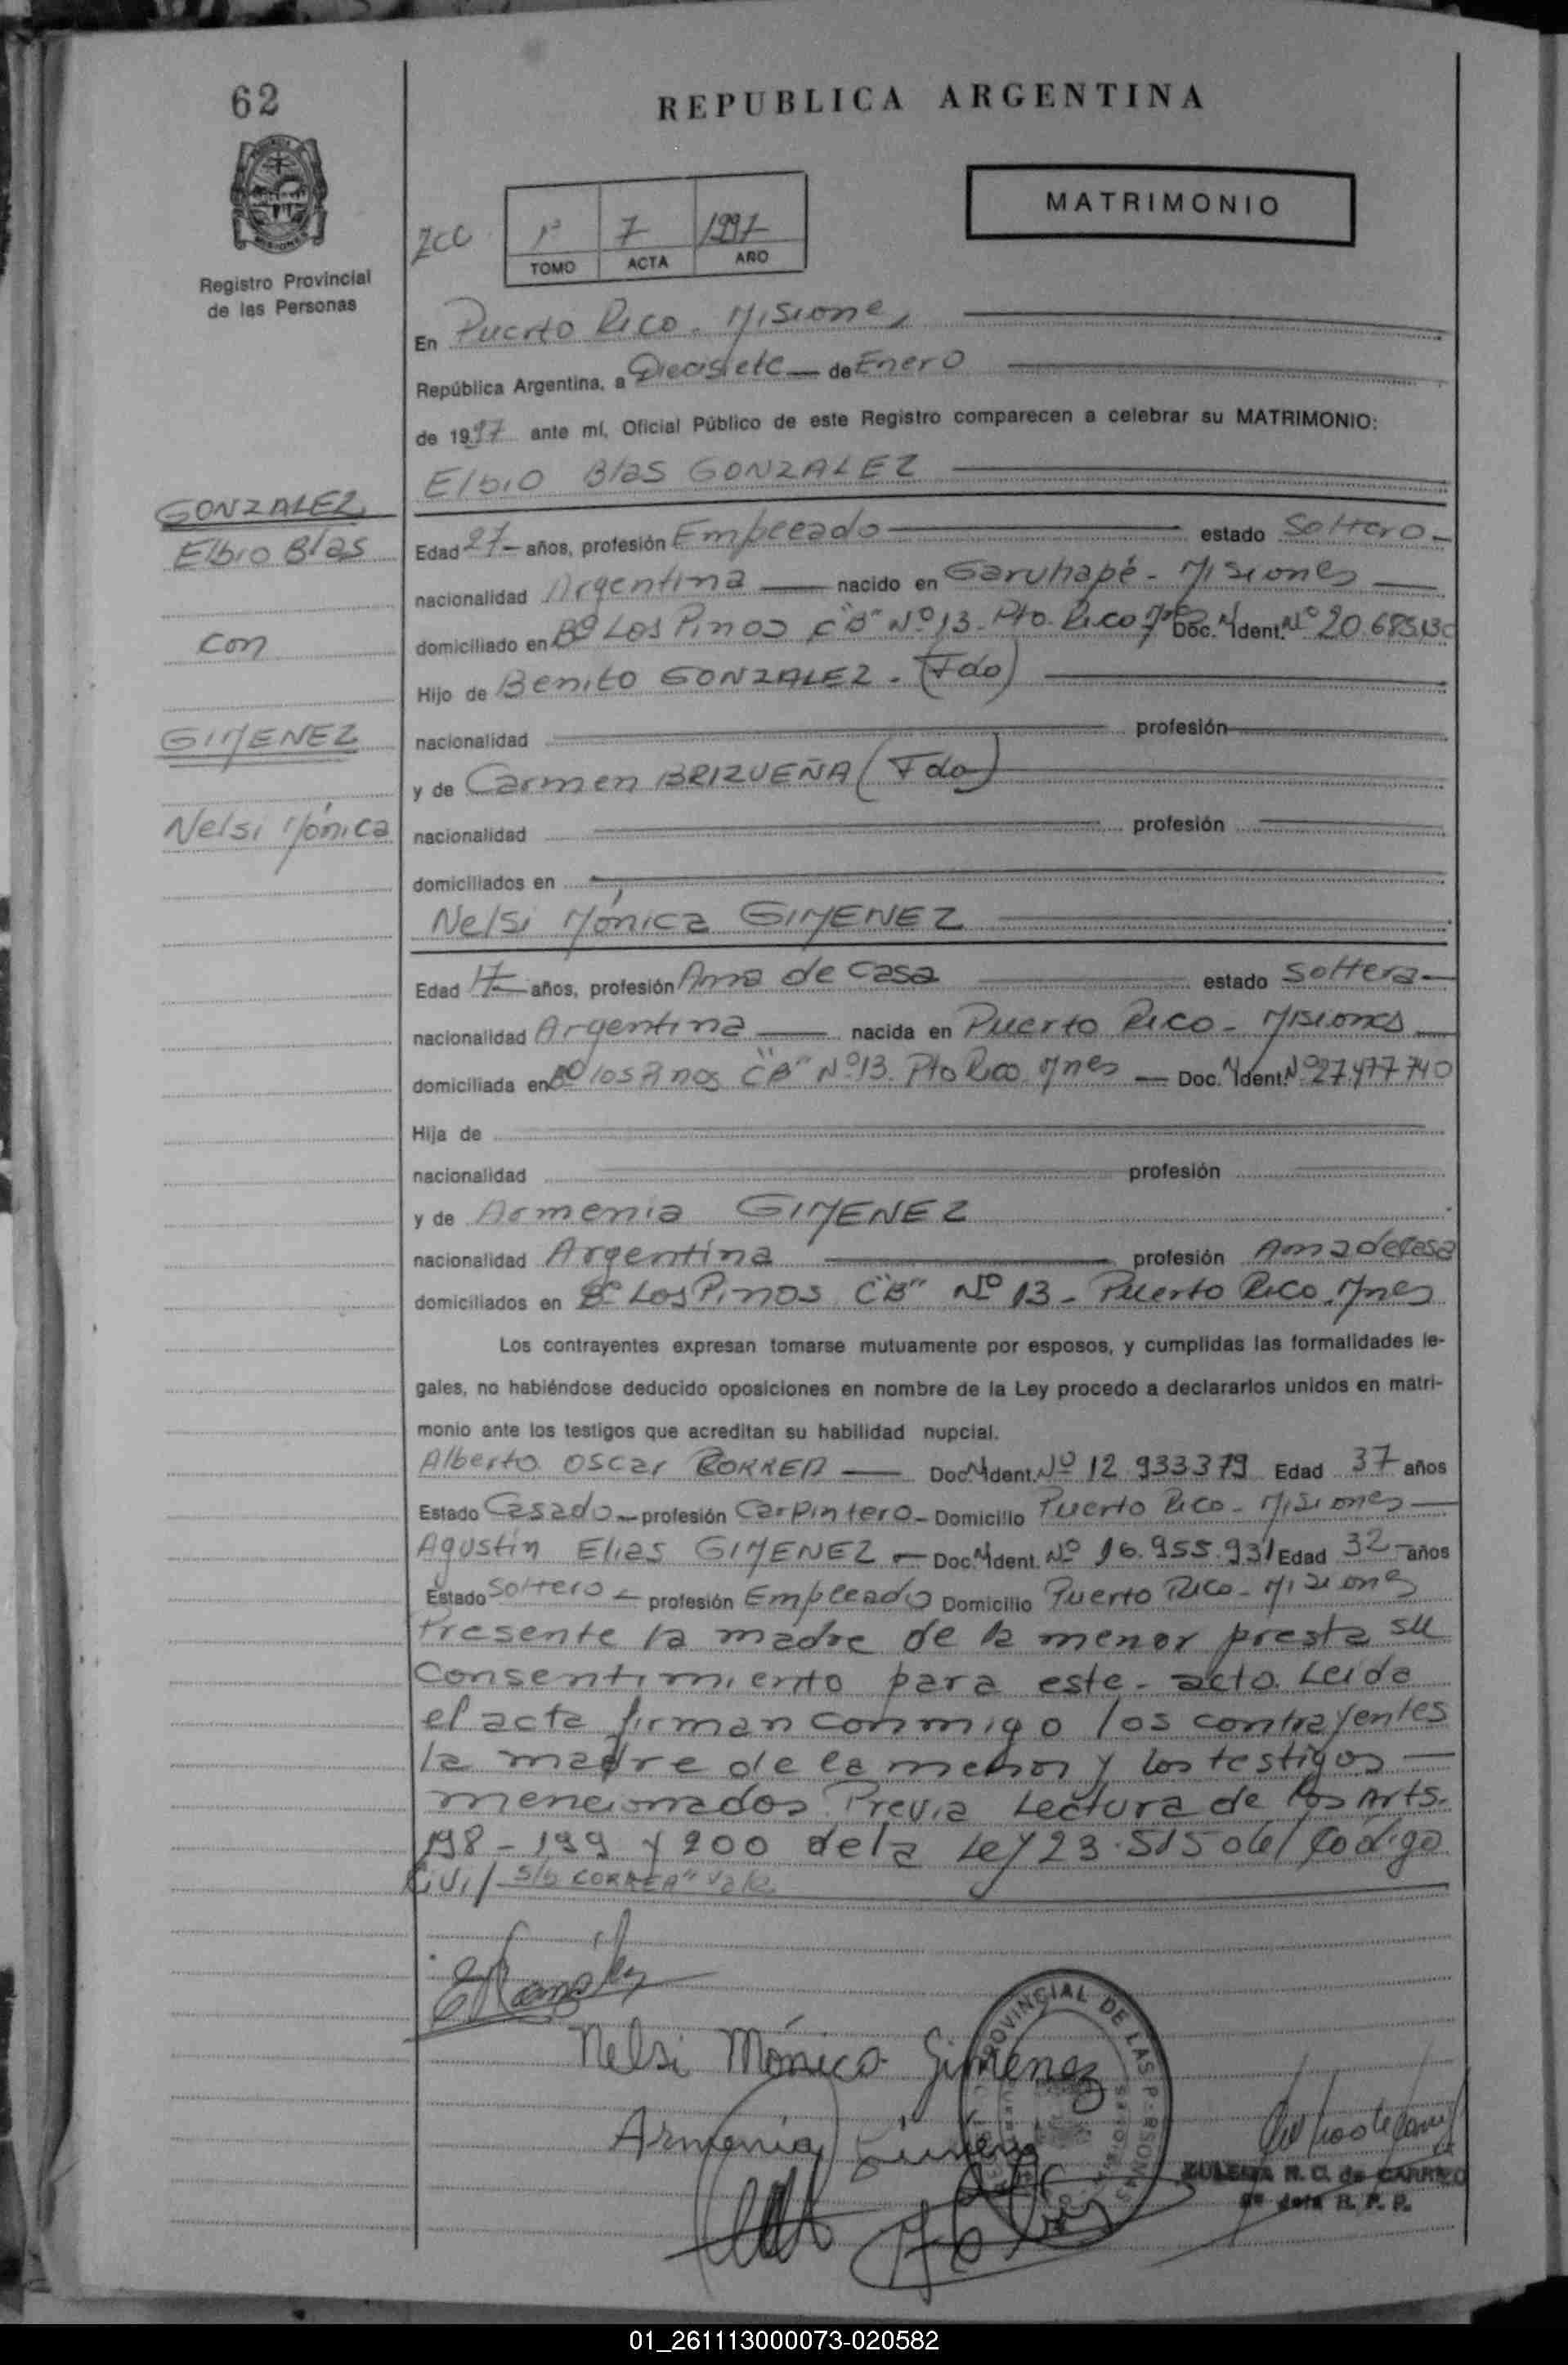 62
REPUBLICA ARGENTINA
MATRIMONIO
Registro Provincial
de las Personas
1º 7 1997
TOMO ACTA AÑO
En Puerto Rico - Misiones
República Argentina, a Diecisiete de Enero
de 1997 ante mí, Oficial Público de este Registro comparecen a celebrar su MATRIMONIO:
Elbio Blas GONZALEZ
GONZALEZ
Elbio Blas
con
GIMENEZ
Nelsi Mónica
Edad 27 - años, profesión Empleado estado Soltero -
nacionalidad Argentina nacido en Garuhapé - Misiones
domiciliado en Bº Los Pinos C"B" Nº 13 - Pto. Rico Mnes Doc. M Ident. Nº 20.685.130
Hijo de Benito GONZALEZ - (Fdo)
nacionalidad profesión
y de Carmen BRIZUEÑA (Fda)
nacionalidad profesión
domiciliados en
Nelsi Mónica GIMENEZ
Edad 17 - años, profesión Ama de casa estado Soltera -
nacionalidad Argentina nacida en Puerto Rico - Misiones
domiciliada en Bº los Pinos C"B" Nº 13. Pto Rico. Mnes - Doc. M Ident. Nº 27.477.740
Hija de
nacionalidad profesión
y de Armenia GIMENEZ
nacionalidad Argentina profesión Ama de Casa
domiciliados en Bº Los Pinos C"B" Nº 13 - Puerto Rico. Mnes
Los contrayentes expresan tomarse mutuamente por esposos, y cumplidas las formalidades le-
gales, no habiéndose deducido oposiciones en nombre de la Ley procedo a declararlos unidos en matri-
monio ante los testigos que acreditan su habilidad nupcial.
Alberto Oscar CORREA Doc. M Ident. Nº 12 933379 Edad 37 años
Estado Casado - profesión Carpintero - Domicilio Puerto Rico - Misiones
Agustín Elias GIMENEZ - Doc. M Ident. Nº 16.955.931 Edad 32 - años
Estado Soltero - profesión Empleado Domicilio Puerto Rico - Misiones
Presente la madre de la menor presta su
consentimiento para este - acto. Leida
el acta firman conmigo los contrayentes
la madre de la menor y los testigos -
mencionados. Previa Lectura de los Arts.
198 - 199 y 200 de la Ley 23.515 del Código
Civil - S/b CORREA" Vale
Nelsi Mónica Gimenez
PROVINCIAL DE LAS PERSONAS
Armenia Gimenez
ZULEMA N. C. de CARRIZO
R. P. P.
01_261113000073-020582